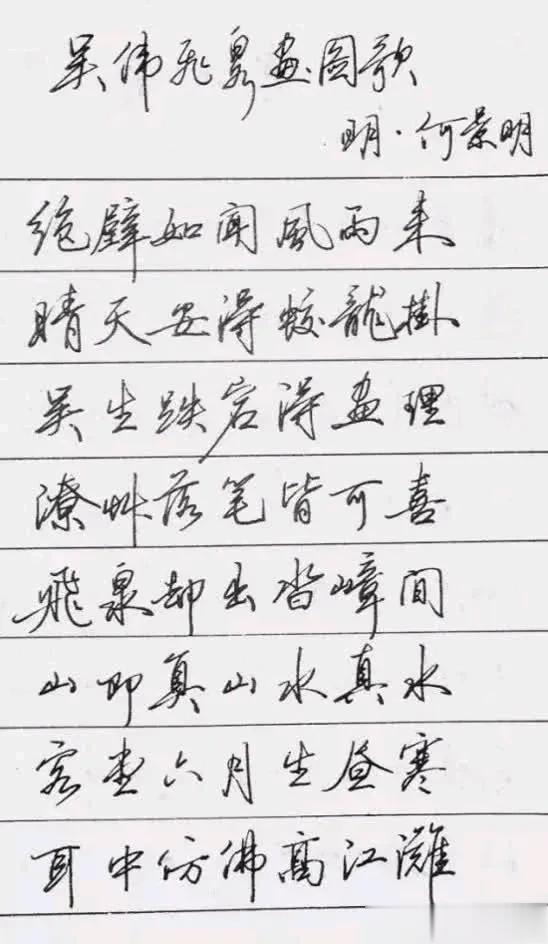 吴伟飞泉画图歌
明·何景明
绝壁如闻風雨来
晴天安得蛟龍掛
吴生跌宕得画理
潦艸落笔皆可喜
飛泉却出沓嶂间
山即真山水真水
客堂六月生昼寒
耳中仿佛高江灘